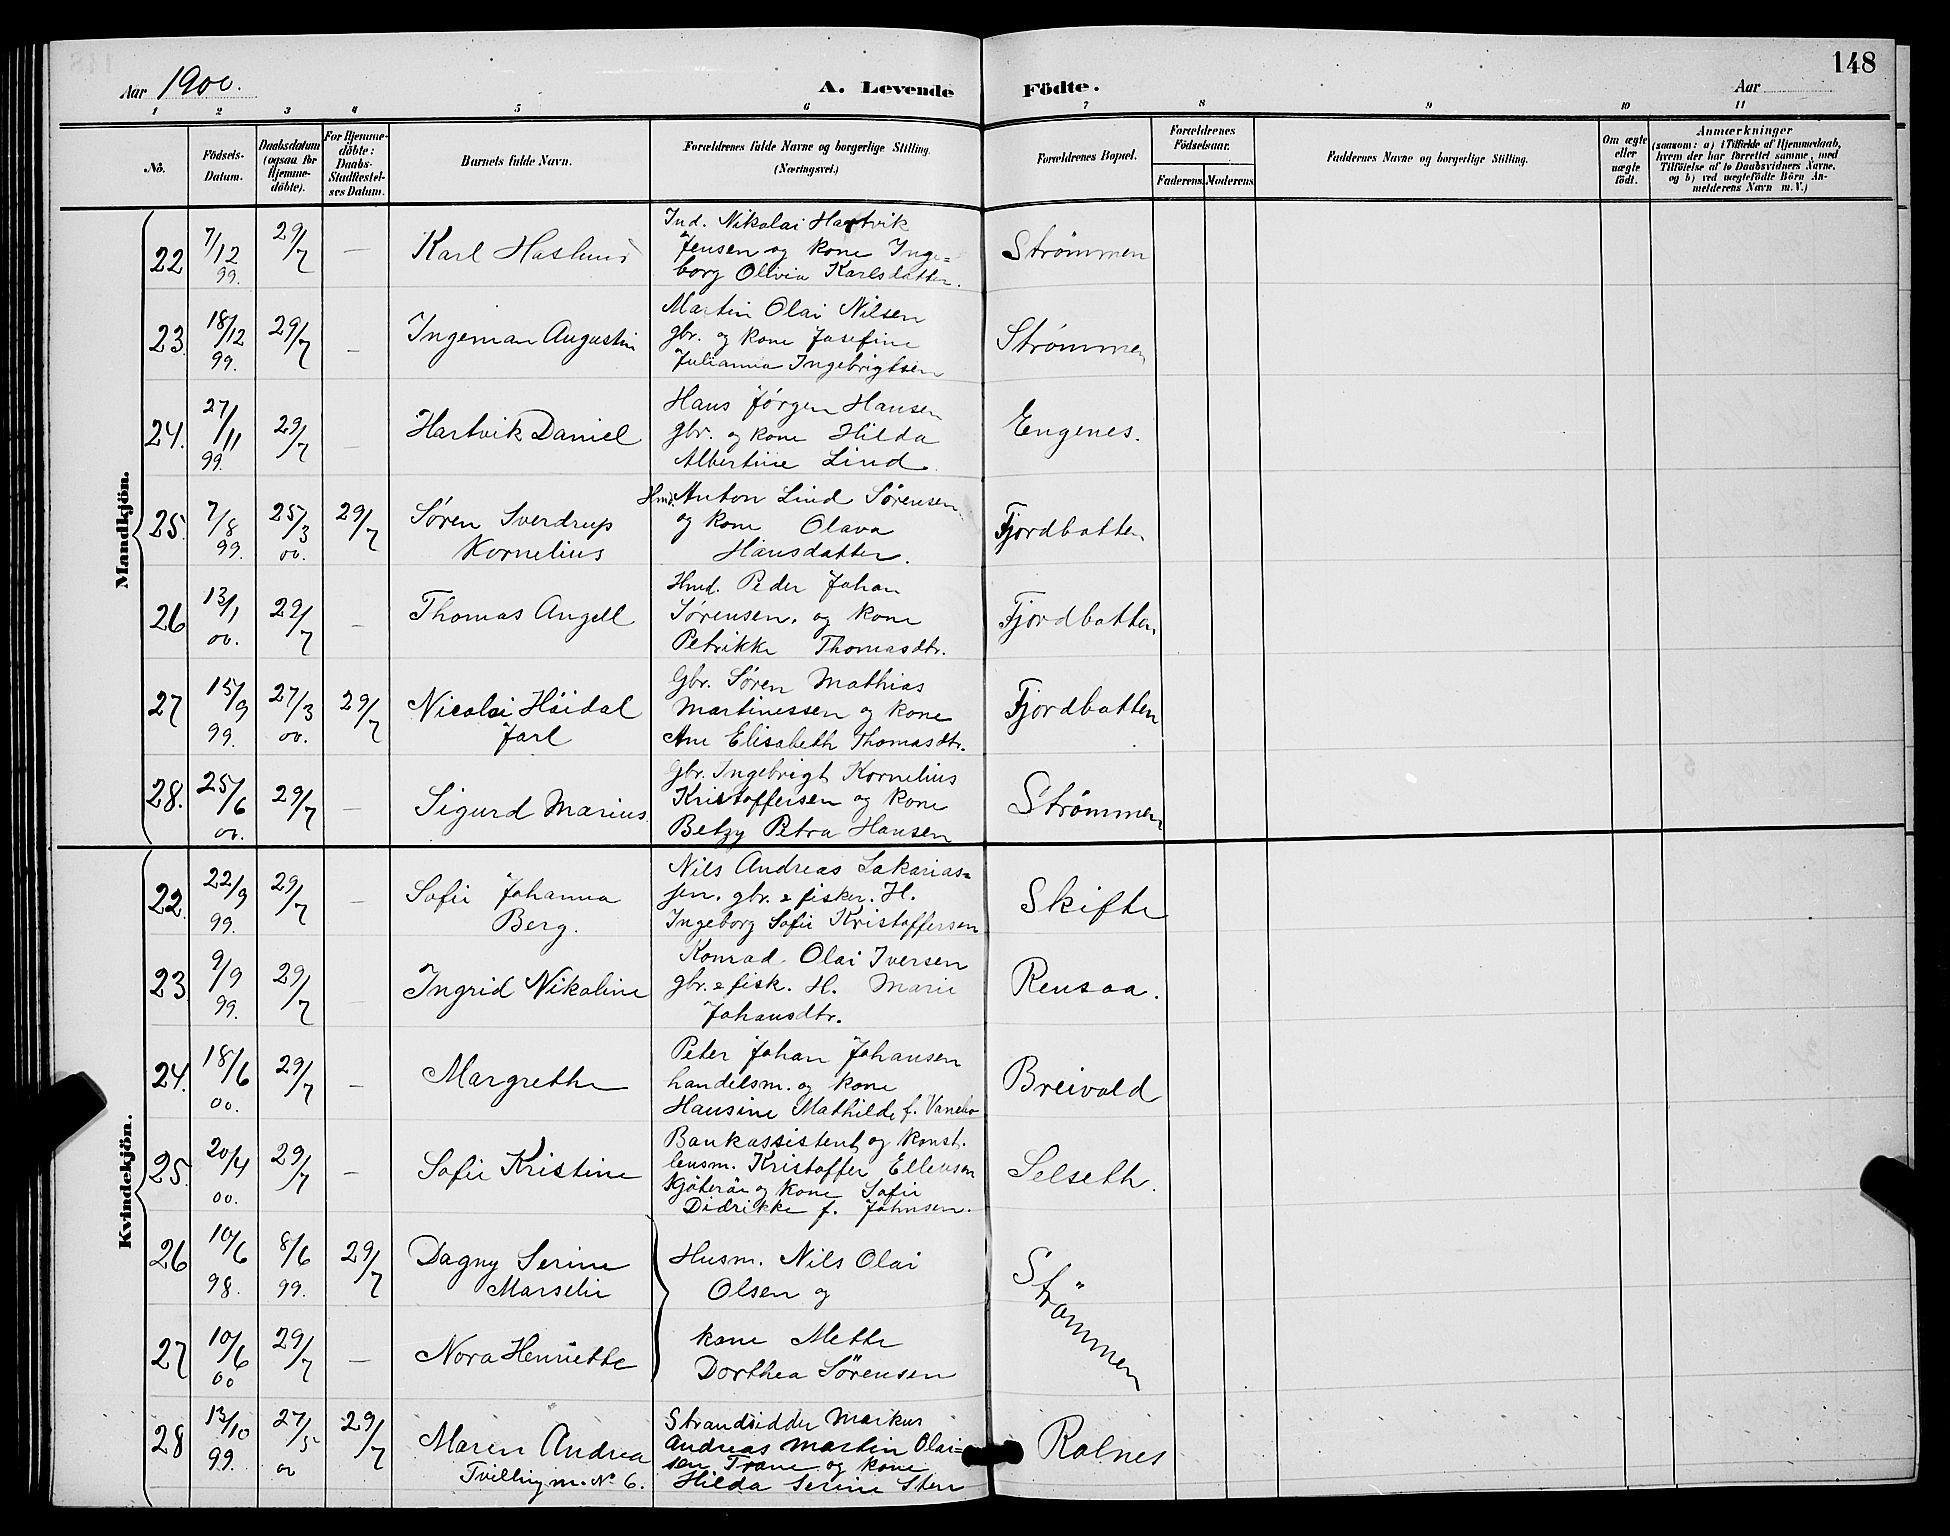 148
Aar 1900.
A. Levende Födte.
Aar
1 2 3 4 5 6 7 8 9 10 11
No.
Födsels-Datum.
Daabsdatum (ogsaa for Hjemme-döbte).
For Hjemme-döbte: Daabs-Stadfæstel-ses Datum.
Barnets fulde Navn.
Forældrenes fulde Navne og borgerlige Stilling. (Næringsvei.)
Forældrenes Bopæl.
Forældrenes Födselsaar.
Faderens. Moderens.
Faddernes Navne og borgerlige Stilling.
Om ægte eller uægte födt.
Anmærkninger
(saasom: a) i Tilfælde af Hjemmedaab,
hvem der har forrettet samme, med
Tilföielse af to Daabsvidners Navne,
og b) ved uægtefödte Börn An-
melderens Navn m. V.)
Mandkjön.
22 7/12 99. 29/7 — Karl Haslund
Ind. Nikolai Hartvik
Jensen og kone Inge=
borg Olivia Karlsdatter.
Strömmen
23. 18/12 99. 29/7 — Ingeman Augustin
Martin Olai Nilsen
gbr. og kone Josefine
Julianna Ingebrigtsen
Strømmen
24. 27/11 99. 29/7 — Hartvik Daniel
Hans Jörgen Hansen
gbr. og kone Hilda
Albertine Lind
Engenes.
25. 7/8 99. 25/3 00. 29/7 Søren Sverdrup
Kornelius
Hmd. Anton Lind Sørensen
og kone Olava
Hansdatter.
Fjordbotten
26 13/1 00. 29/7 — Thomas Angell
Hmd. Peder Johan
Sørensen. og kone
Petrikke Thomasdtr.
Fjordbotten
27 15/9 99. 27/3 00. 29/7 Nicolai Höidal
Jarl
Gbr. Søren Mathias
Martinessen og kone
Ane Elisabeth Thomasdtr.
Fjordbotten
28. 25/6 00. 29/7 — Sigurd Marius
Gbr. Ingebrigt Kornelius
Kristoffersen og kone
Betzy Petra Hansen
Strömmen
Kvindekjön.
22. 22/9 99. 29/7 — Sofie Johanna
Berg.
Nils Andreas Sakarias=
sen. gbr. & fisker. H.
Ingeborg Sofie Kristoffersen
Skifte
23. 9/9 99. 29/7 — Ingrid Nikoline
Konrad Olai Iversen
gbr. & fisk. H. Marie
Johansdtr.
Rensaa.
24. 18/6 00. 29/7 — Margrethe
Peter Johan Johansen
handelsm. og kone
Hansine Mathilde f.
Breivold
25. 20/4 00. 29/7 — Sofie Kristine
Bankassistent og konst.
lensm. Kristoffer Ellensen
og kone Sofie
Didrikke f. Johnsen.
Selseth.
26 10/6 98. 8/6 99. 29/7 Dagny Serine
Marselie
Husm. Nils Olai
Olsen og
27 10/6 00 29/7 — Nora Henriette
kone Mette
Dorthea Sörensen
Strömmen
28 13/10 99. 27/5 00 29/7 Maren Andrea
Tvilling m. No 6.
Strandsidder Markus
Andreas Martin Olai=
sen Trane og kone
Hilda Serine Sten
Rolnes